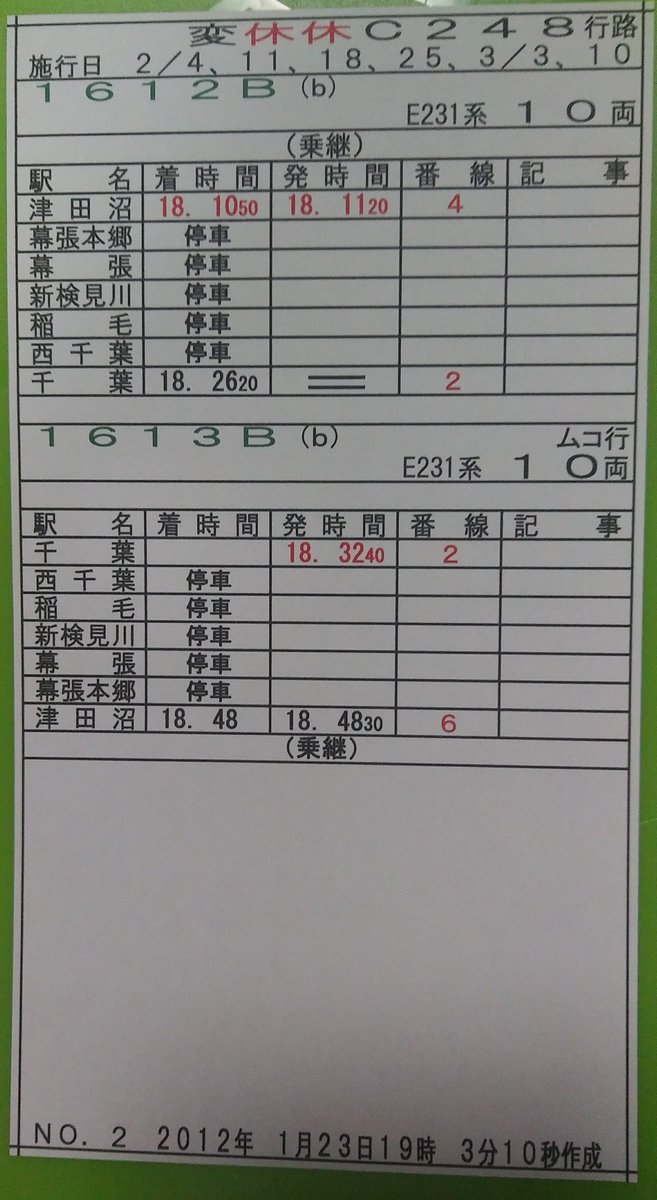 変休休C248行路
施行日 2/4、11、18、25、3/3、10
1612B (b)
E231系 10両
(乗継)
駅名 着時間 発時間 番線 記事
津田沼 18. 1050 18. 1120 4
幕張本郷 停車
幕張 停車
新検見川 停車
稲毛 停車
西千葉 停車
千葉 18. 2620 == 2
1613B (b) ムコ行
E231系 10両
駅名 着時間 発時間 番線 記事
千葉 18. 3240 2
西千葉 停車
稲毛 停車
新検見川 停車
幕張 停車
幕張本郷 停車
津田沼 18. 48 18. 4830 6
(乗継)
NO. 2 2012年 1月23日19時 3分10秒作成